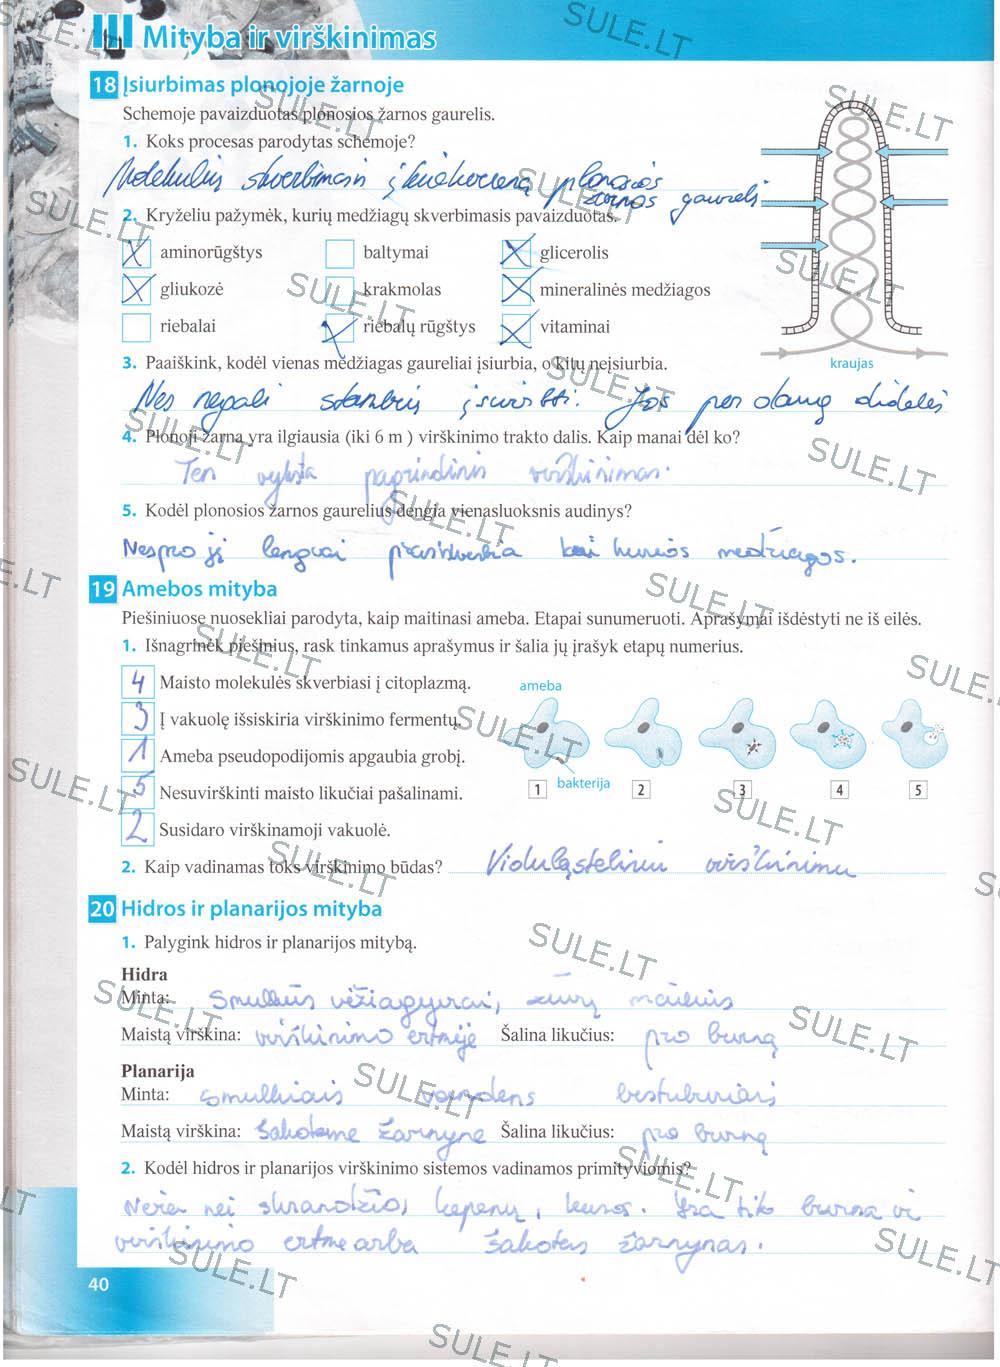 III Mityba ir virškinimas
18 Įsiurbimas plonojoje žarnoje
Schemoje pavaizduotas plonosios žarnos gaurelis.
1. Koks procesas parodytas schemoje?
Molekulių skverbimasis į kiekvieną plonosios žarnos gaurelį
2. Kryželiu pažymėk, kurių medžiagų skverbimasis pavaizduotas.
X aminorūgštys baltymai X glicerolis
X gliukozė krakmolas X mineralinės medžiagos
riebalai X riebalų rūgštys X vitaminai
kraujas
3. Paaiškink, kodėl vienas medžiagas gaureliai įsiurbia, o kitų neįsiurbia.
Nes negali stambių įsiurbti. Jos per daug didelės
4. Plonoji žarna yra ilgiausia (iki 6 m ) virškinimo trakto dalis. Kaip manai dėl ko?
Ten vyksta pagrindinis virškinimas.
5. Kodėl plonosios žarnos gaurelius dengia vienasluoksnis audinys?
Nes pro jį lengvai prasiskverbia kai kurios medžiagos.
19 Amebos mityba
Piešiniuose nuosekliai parodyta, kaip maitinasi ameba. Etapai sunumeruoti. Aprašymai išdėstyti ne iš eilės.
1. Išnagrinėk piešinius, rask tinkamus aprašymus ir šalia jų įrašyk etapų numerius.
4 Maisto molekulės skverbiasi į citoplazmą.
3 Į vakuolę išsiskiria virškinimo fermentų.
1 Ameba pseudopodijomis apgaubia grobį.
5 Nesuvirškinti maisto likučiai pašalinami.
2 Susidaro virškinamoji vakuolė.
ameba
bakterija
1 2 3 4 5
2. Kaip vadinamas toks virškinimo būdas? Viduląsteliniu virškinimu
20 Hidros ir planarijos mityba
1. Palygink hidros ir planarijos mitybą.
Hidra
Minta: Smulkūs vėžiagyviai, žuvų mailius
Maistą virškina: virškinimo ertmėje Šalina likučius: pro burną
Planarija
Minta: smulkiais vandens bestuburiais
Maistą virškina: šakotame žarnyne Šalina likučius: pro burną
2. Kodėl hidros ir planarijos virškinimo sistemos vadinamos primityviomis?
Nėra nei skrandžio, kepenų, kasos. Yra tik burna ir
virškinimo ertmė arba šakotas žarnynas.
40
SULE.LT